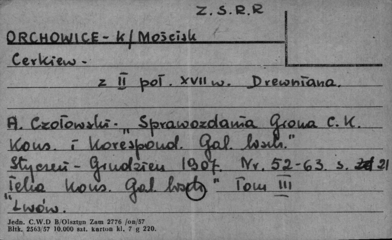 Z.S.R.R
ORCHOWICE - K/Mościsk
Cerkiew -
z II poł. XVII w. Drewniana.
A. Czołowski - "Sprawozdania Grona C. K.
Kons. i Korespond. Gal. Wsch."
Styczeń - Grudzień 1907. Nr. 52-63. s. 21
Teka Kons. Gal. Wsch." Tom III
"Lwów.
Jedn. C.W.D B/Olsztyn Zam 2776 /nn/57
Bltk. 2563/57 10.000 szt. karton kl. 7 g 220.